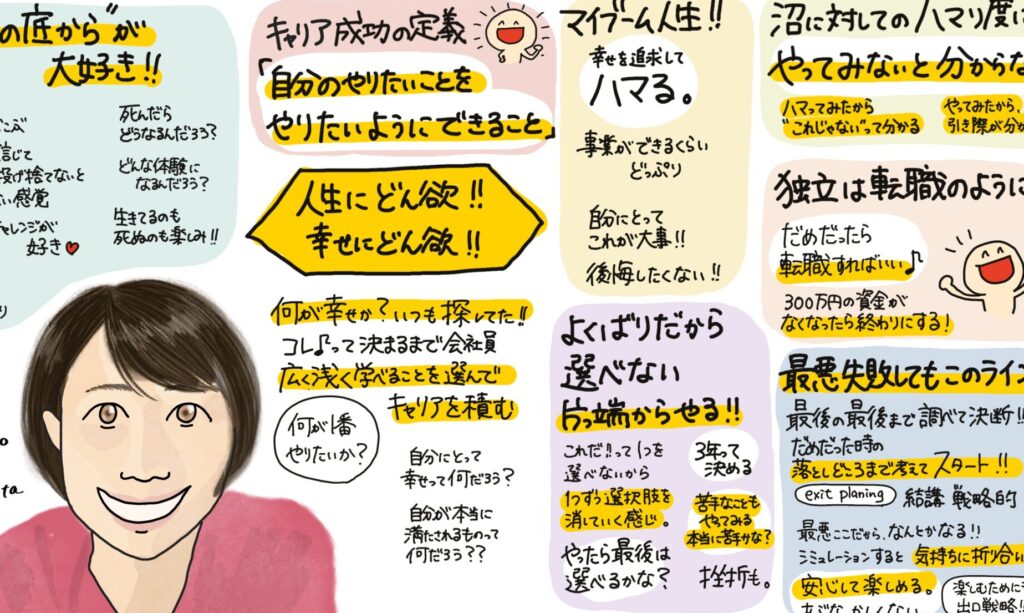 の底から"が
大好き!!
死んだら
どうなるんだろう?
どんな体験に
なるんだろう?
生きてるのも
死ぬのも楽しみ!!
信じて
投げ捨てないと
ない感覚
チャレンジが
好き
キャリア成功の定義
「自分のやりたいことを
やりたいようにできること」
人生にどん欲!!
幸せにどん欲!!
何が幸せか?いつも探してた!!
コレ♪って決まるまで会社員
広く浅く学べることを選んで
キャリアを積む
何が1番
やりたいか?
自分にとって
幸せって何だろう?
自分が本当に
満たされるものって
何だろう??
マイブーム人生!!
幸せを追求して
ハマる。
事業ができるくらい
どっぷり
自分にとって
これが大事!!
後悔したくない!!
よくばりだから
選べない
片っ端からやる!!
これだ!!って1つを
選べないから
1つずつ選択肢を
消していく感じ。
やったら最後は
選べるかな?
3年って
決める
苦手なことも
やってみる
本当に苦手かな?
挫折も。
沼に対してのハマり度は
やってみないと分からな
ハマってみたから
"これじゃない"って分かる
やってみたから、
引き際が分か
独立は転職のように
だめだったら
転職すればいい♪
300万円の資金が
なくなったら終わりにする!
最悪失敗してもこのライン
最後の最後まで調べて決断!!
だめだった時の
落としどころまで考えてスタート!!
exit planing
結構戦略的
最悪ここだから、なんとかなる!!
シミュレーションすると気持ちに折り合い
安心して楽しめる。
楽しむために
出口戦略!!